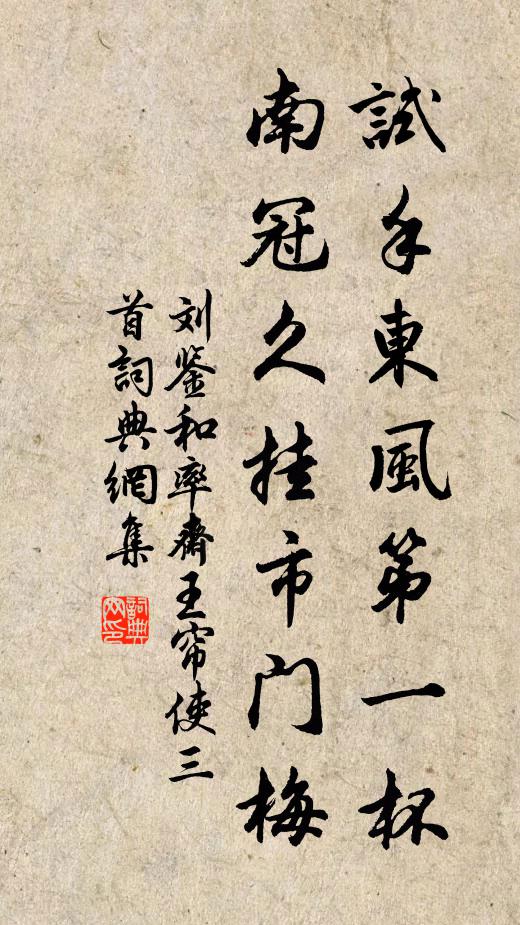 試手東風第一杯
南冠久挂市門梅
刘鉴和率齋王帘使三
首詞典網集
詞典
网印